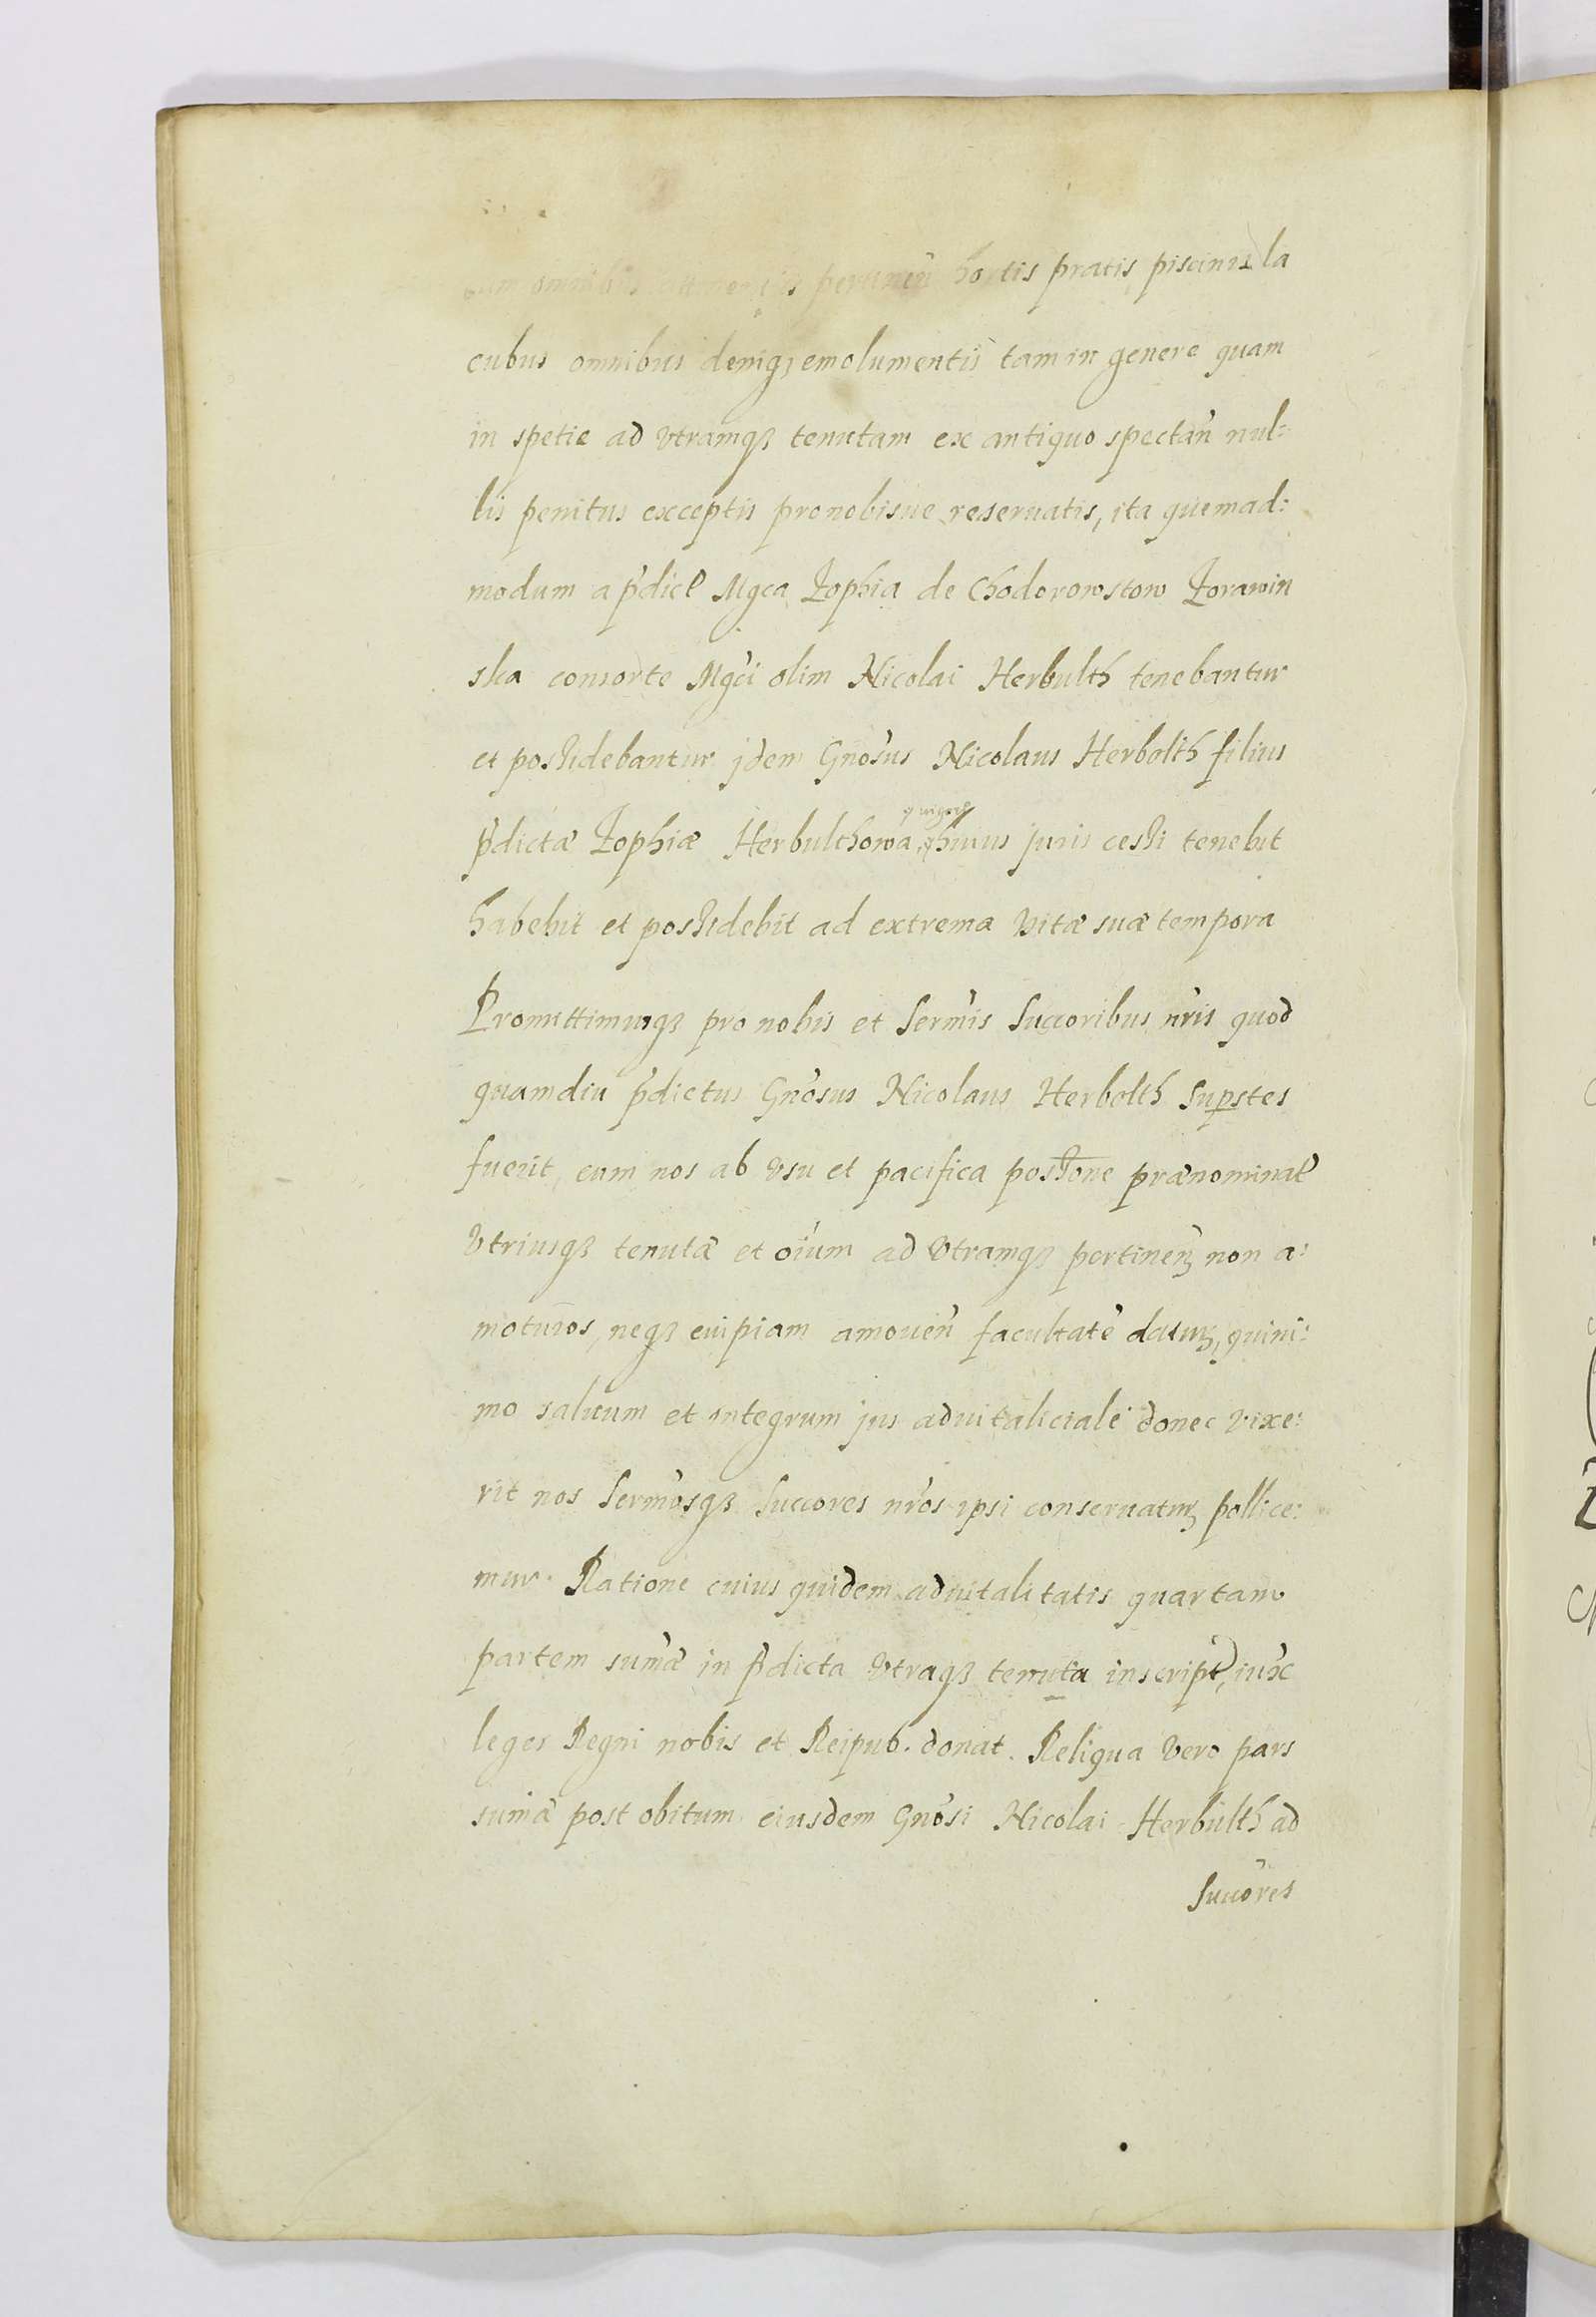 cum omnibus attinentiis pertinen̄ hortis pratis, piscinis la
cubus omnibus deniqȝ emolumentis tam in genere quam
in spetie ad vtramqȝ tenutam ex antiquo spectan̄ nul:
lis penitus exceptis pro nobisue reseruatis, ita quemad:
modum a p̄dict Mgca Zophia de Chodorowstow Zorawin
ska consorte Mḡci olim Nicolai Herbulth tenebantur
et possidebantur jdem Gnōsus Nicolaus Herbolth filius
p̄dictæ Zophiæ Herbulthowa, huius juris cessi tenebit
habebit et possidebit ad extrema vitæ suæ tempora
Promittimusqȝ pro nobis et Serm̄is Succoribus nr̄is quod
quamdiu p̄dictus Gnōsus Nicolaus Herbolth Suꝑstes
fuerit, eum nos ab vsu et pacifica possōne prænominat
vtriusqȝ tenutæ et oīum ad vtramqȝ pertinenȝ non a:
moturos, neqȝ cuipiam amouen̄ facultatē daturȝ, quini:
mo saluum et integrum jus aduitaliciale donec vixe:
rit nos Serm̄osqȝ Succores nr̄os ipsi conseruaturȝ pollice:
mur. Ratione cuius quidem aduitalitatis quartam
partem sum̄æ in p̄dicta vtraqȝ tenuta inscript, iux̄
leges Regni nobis et Reipub. donat. Reliqua vero pars
sum̄æ post obitum eiusdem Gnōsi Nicolai Herbulth ad
Succōres